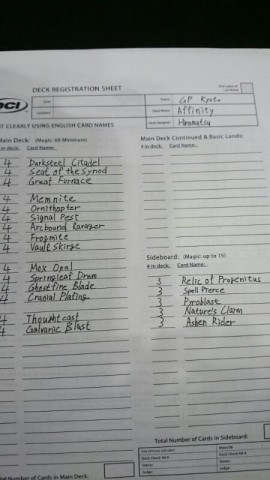 DECK REGISTRATION SHEET
DCI
Date:
Event: GP Kyoto
Location:
Deck Name: Affinity
Deck Designer: Hiromatsu
PRINT CLEARLY USING ENGLISH CARD NAMES
Main Deck: (Magic: 60 Minimum)
# in deck: Card Name:
4 Darksteel Citadel
4 Seat of the Synod
4 Great Furnace
4 Memnite
4 Ornithopter
4 Signal Pest
4 Arcbound Ravager
4 Frogmite
4 Vault Skirge
4 Mox Opal
4 Springleaf Drum
4 Ghostfire Blade
4 Cranial Plating
4 Thoughtcast
4 Galvanic Blast
Total Number of Cards in Main Deck:
Main Deck Continued & Basic Lands
# in deck: Card Name:
Sideboard: (Magic: up to 15)
# in deck: Card Name:
3 Relic of Progenitus
3 Spell Pierce
3 Pyroblast
3 Nature's Claim
3 Ashen Rider
Total Number of Cards in Sideboard: